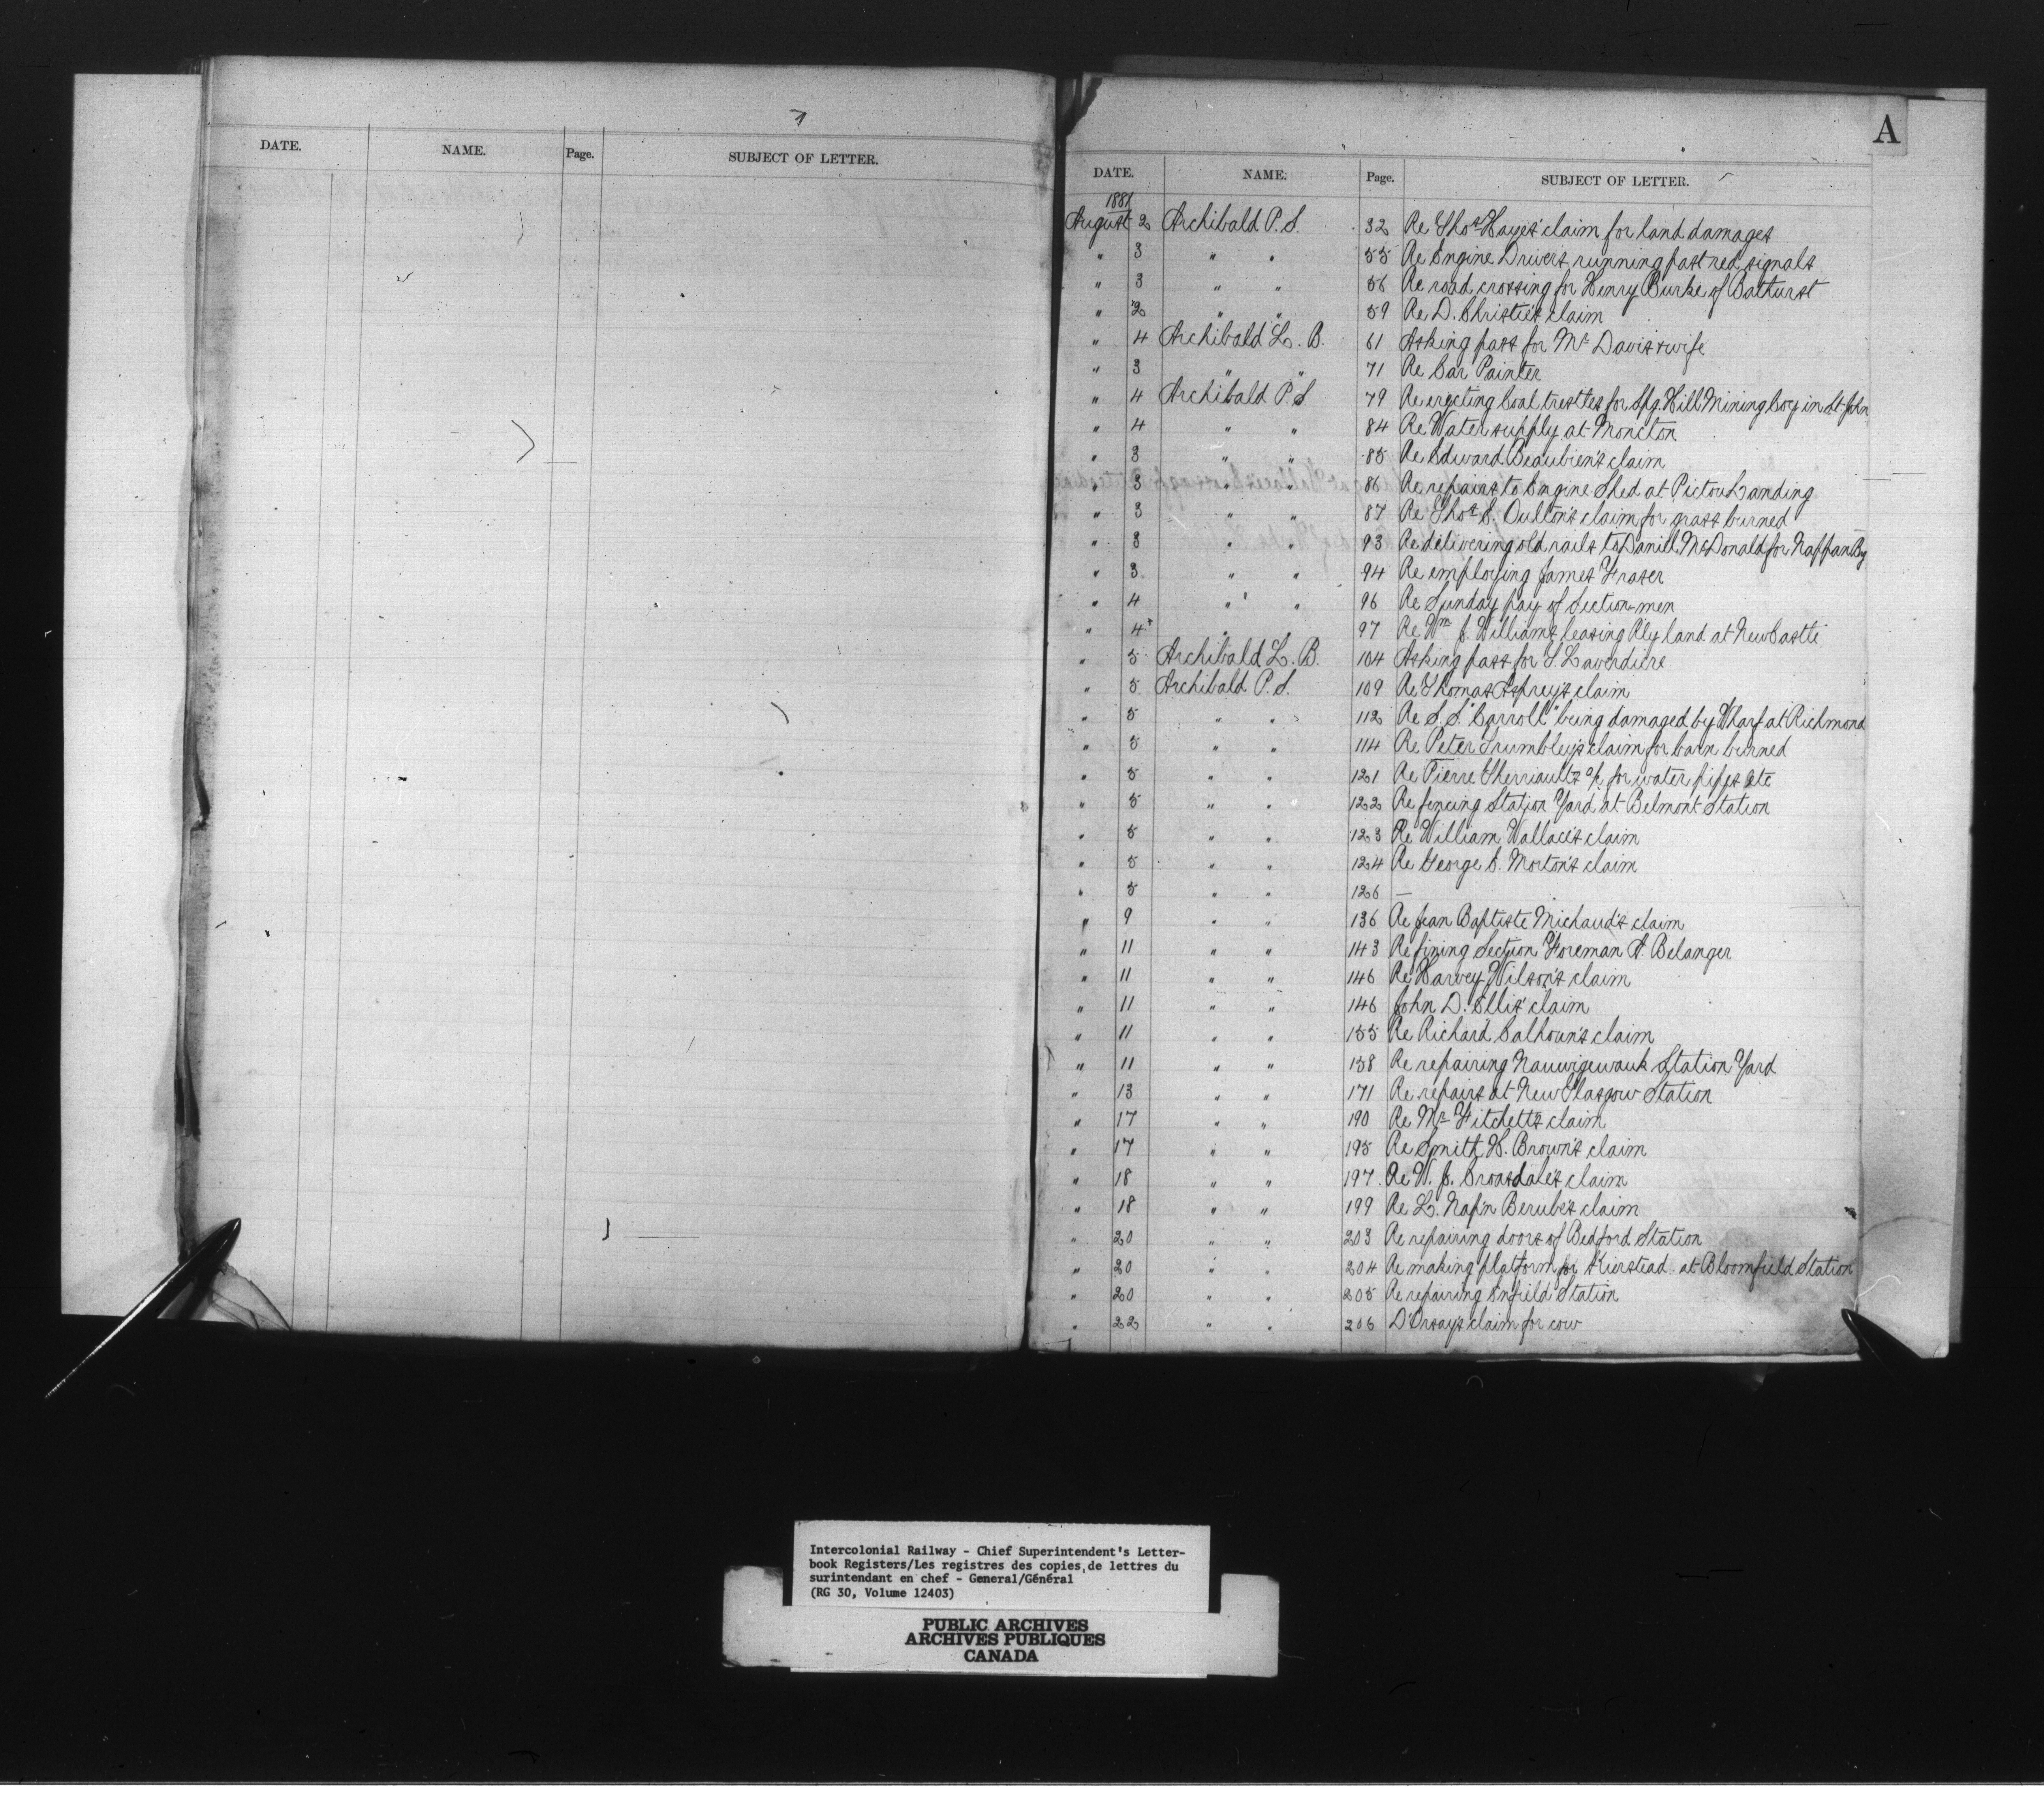 DATE. NAME. Page. SUBJECT OF LETTER.
A
DATE. NAME. Page. SUBJECT OF LETTER.
1881
August 2 Archibald P. S. 32 Re Thos Hayes' claim for land damages
" 3 " " 55 Re Engine Drivers running past red signals
" 3 " " 56 Re road crossing for Henry Burke of Bathurst
" 2 " " 59 Re D. Christie's claim
" 4 Archibald L. B. 61 Asking pass for Mr Davis's wife
" 3 " " 71 Re Car Painter
" 4 Archibald P. S 79 Re erecting Coal trestles for Spg. Hill Mining Coy in St John
" 4 " " 84 Re Water supply at Moncton
" 3 " " 85 Re Edward Beaubien's claim
" 3 " " 86 Re repairs to Engine Shed at Pictou Landing
" 3 " " 87 Re Thos E. Oulton's claim for grass burned
" 3 " " 93 Re delivering old rails to Daniel McDonald for Nappan Bg
" 3 " " 94 Re employing James Fraser
" 4 " " 96 Re Sunday pay of Section-men
" 4 " 97 Re Wm J. Williams leasing R'ly land at NewCastle
" 5 Archibald L. B. 104 Asking pass for S. Laverdiere
" 5 Archibald P. S. 109 Re Thomas Asprey's claim
" 5 " " 112 Re S. S. "Carroll" being damaged by Wharf at Richmond
" 5 " " 114 Re Peter Trumbley's claim for barn burned
" 5 " " 121 Re Pierre Therriault's a/c for water pipes etc
" 5 " " 122 Re fencing Station Yard at Belmont Station
" 5 " " 123 Re William Wallace's claim
" 5 " " 124 Re George S. Morton's claim
" 5 " " 126 —
" 9 " " 136 Re Jean Baptiste Michaud's claim
" 11 " " 143 Re fining Section Foreman A. Belanger
" 11 " " 146 Re Harvey Wilson's claim
" 11 " " 146 John D. Ellis' claim
" 11 " " 155 Re Richard Calhoun's claim
" 11 " " 158 Re repairing Nauwigewauk Station Yard
" 13 " " 171 Re repairs at New Glasgow Station
" 17 " " 190 Re Mr Fitchett's claim
" 17 " " 195 Re Smith H. Brown's claim
" 18 " " 197 Re W. J. Croasdale's claim
" 18 " " 199 Re L. Nap'n Berube's claim
" 20 " " 203 Re repairing doors of Bedford Station
" 20 " " 204 Re making platform for Kierstead at Bloomfield Station
" 20 " " 205 Re repairing Enfield Station
" 22 " " 206 D'Orsay's claim for cow
Intercolonial Railway - Chief Superintendent's Letter-
book Registers/Les registres des copies de lettres du
surintendant en chef - General/Général
(RG 30, Volume 12403)
PUBLIC ARCHIVES
ARCHIVES PUBLIQUES
CANADA